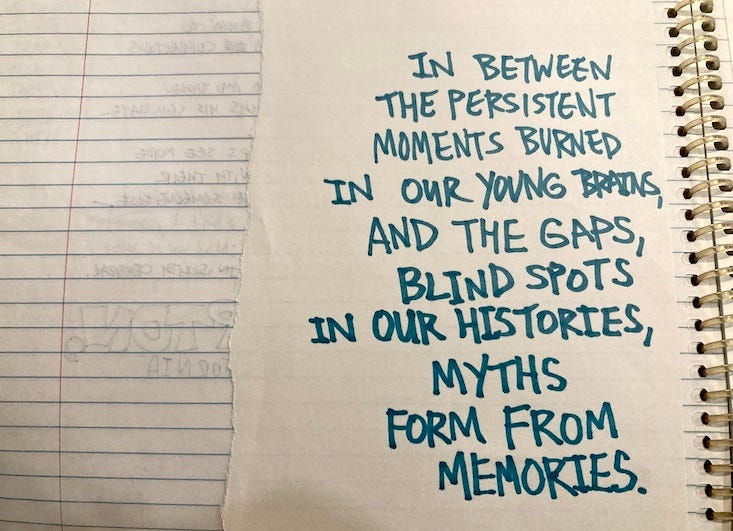 IN BETWEEN
THE PERSISTENT
MOMENTS BURNED
IN OUR YOUNG BRAINS,
AND THE GAPS,
BLIND SPOTS
IN OUR HISTORIES,
MYTHS
FORM FROM
MEMORIES.